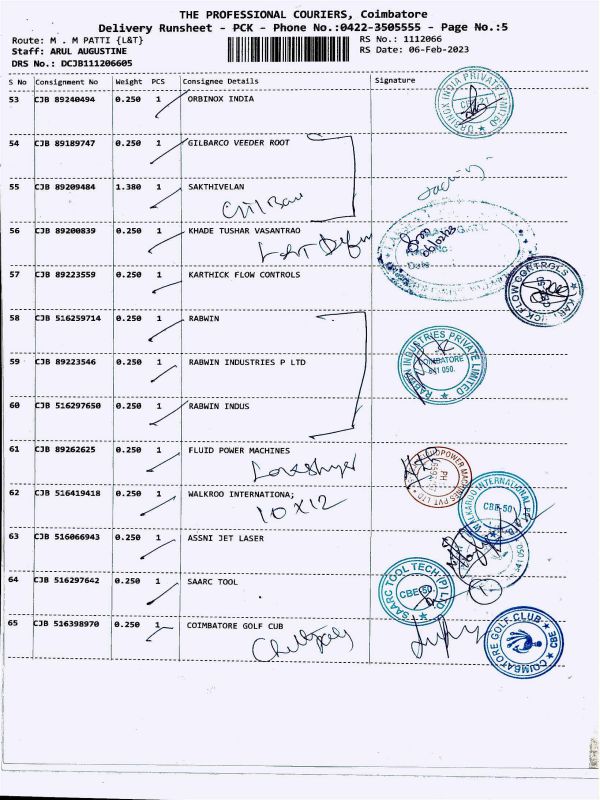 THE PROFESSIONAL COURIERS, Coimbatore
Delivery Runsheet - PCK - Phone No.:0422-3505555 - Page No.:5
Route: M . M PATTI {L&T}
RS No.: 1112066
Staff: ARUL AUGUSTINE
RS Date: 06-Feb-2023
DRS No.: DCJB111206605
S No Consignment No Weight PCS Consignee Details Signature
53 CJB 89240494 0.250 1 ORBINOX INDIA
ORBINOX INDIA PRIVATE LIMITED
54 CJB 89189747 0.250 1 GILBARCO VEEDER ROOT
55 CJB 89209484 1.380 1 SAKTHIVELAN
56 CJB 89200839 0.250 1 KHADE TUSHAR VASANTRAO
06/02/23
Date
57 CJB 89223559 0.250 1 KARTHICK FLOW CONTROLS
KARTHICK FLOW CONTROLS
CBE-50
58 CJB 516259714 0.250 1 RABWIN
59 CJB 89223546 0.250 1 RABWIN INDUSTRIES P LTD
RABWIN INDUSTRIES PRIVATE LIMITED
COIMBATORE
641 050.
60 CJB 516297650 0.250 1 RABWIN INDUS
61 CJB 89262625 0.250 1 FLUID POWER MACHINES
62 CJB 516419418 0.250 1 WALKROO INTERNATIONA;
10 X 12
CBE-50
63 CJB 516066943 0.250 1 ASSNI JET LASER
64 CJB 516297642 0.250 1 SAARC TOOL
SAARC TOOL TECH(P)LTD
CBE-50
65 CJB 516398970 0.250 1 COIMBATORE GOLF CUB
COIMBATORE GOLF CLUB
CBE